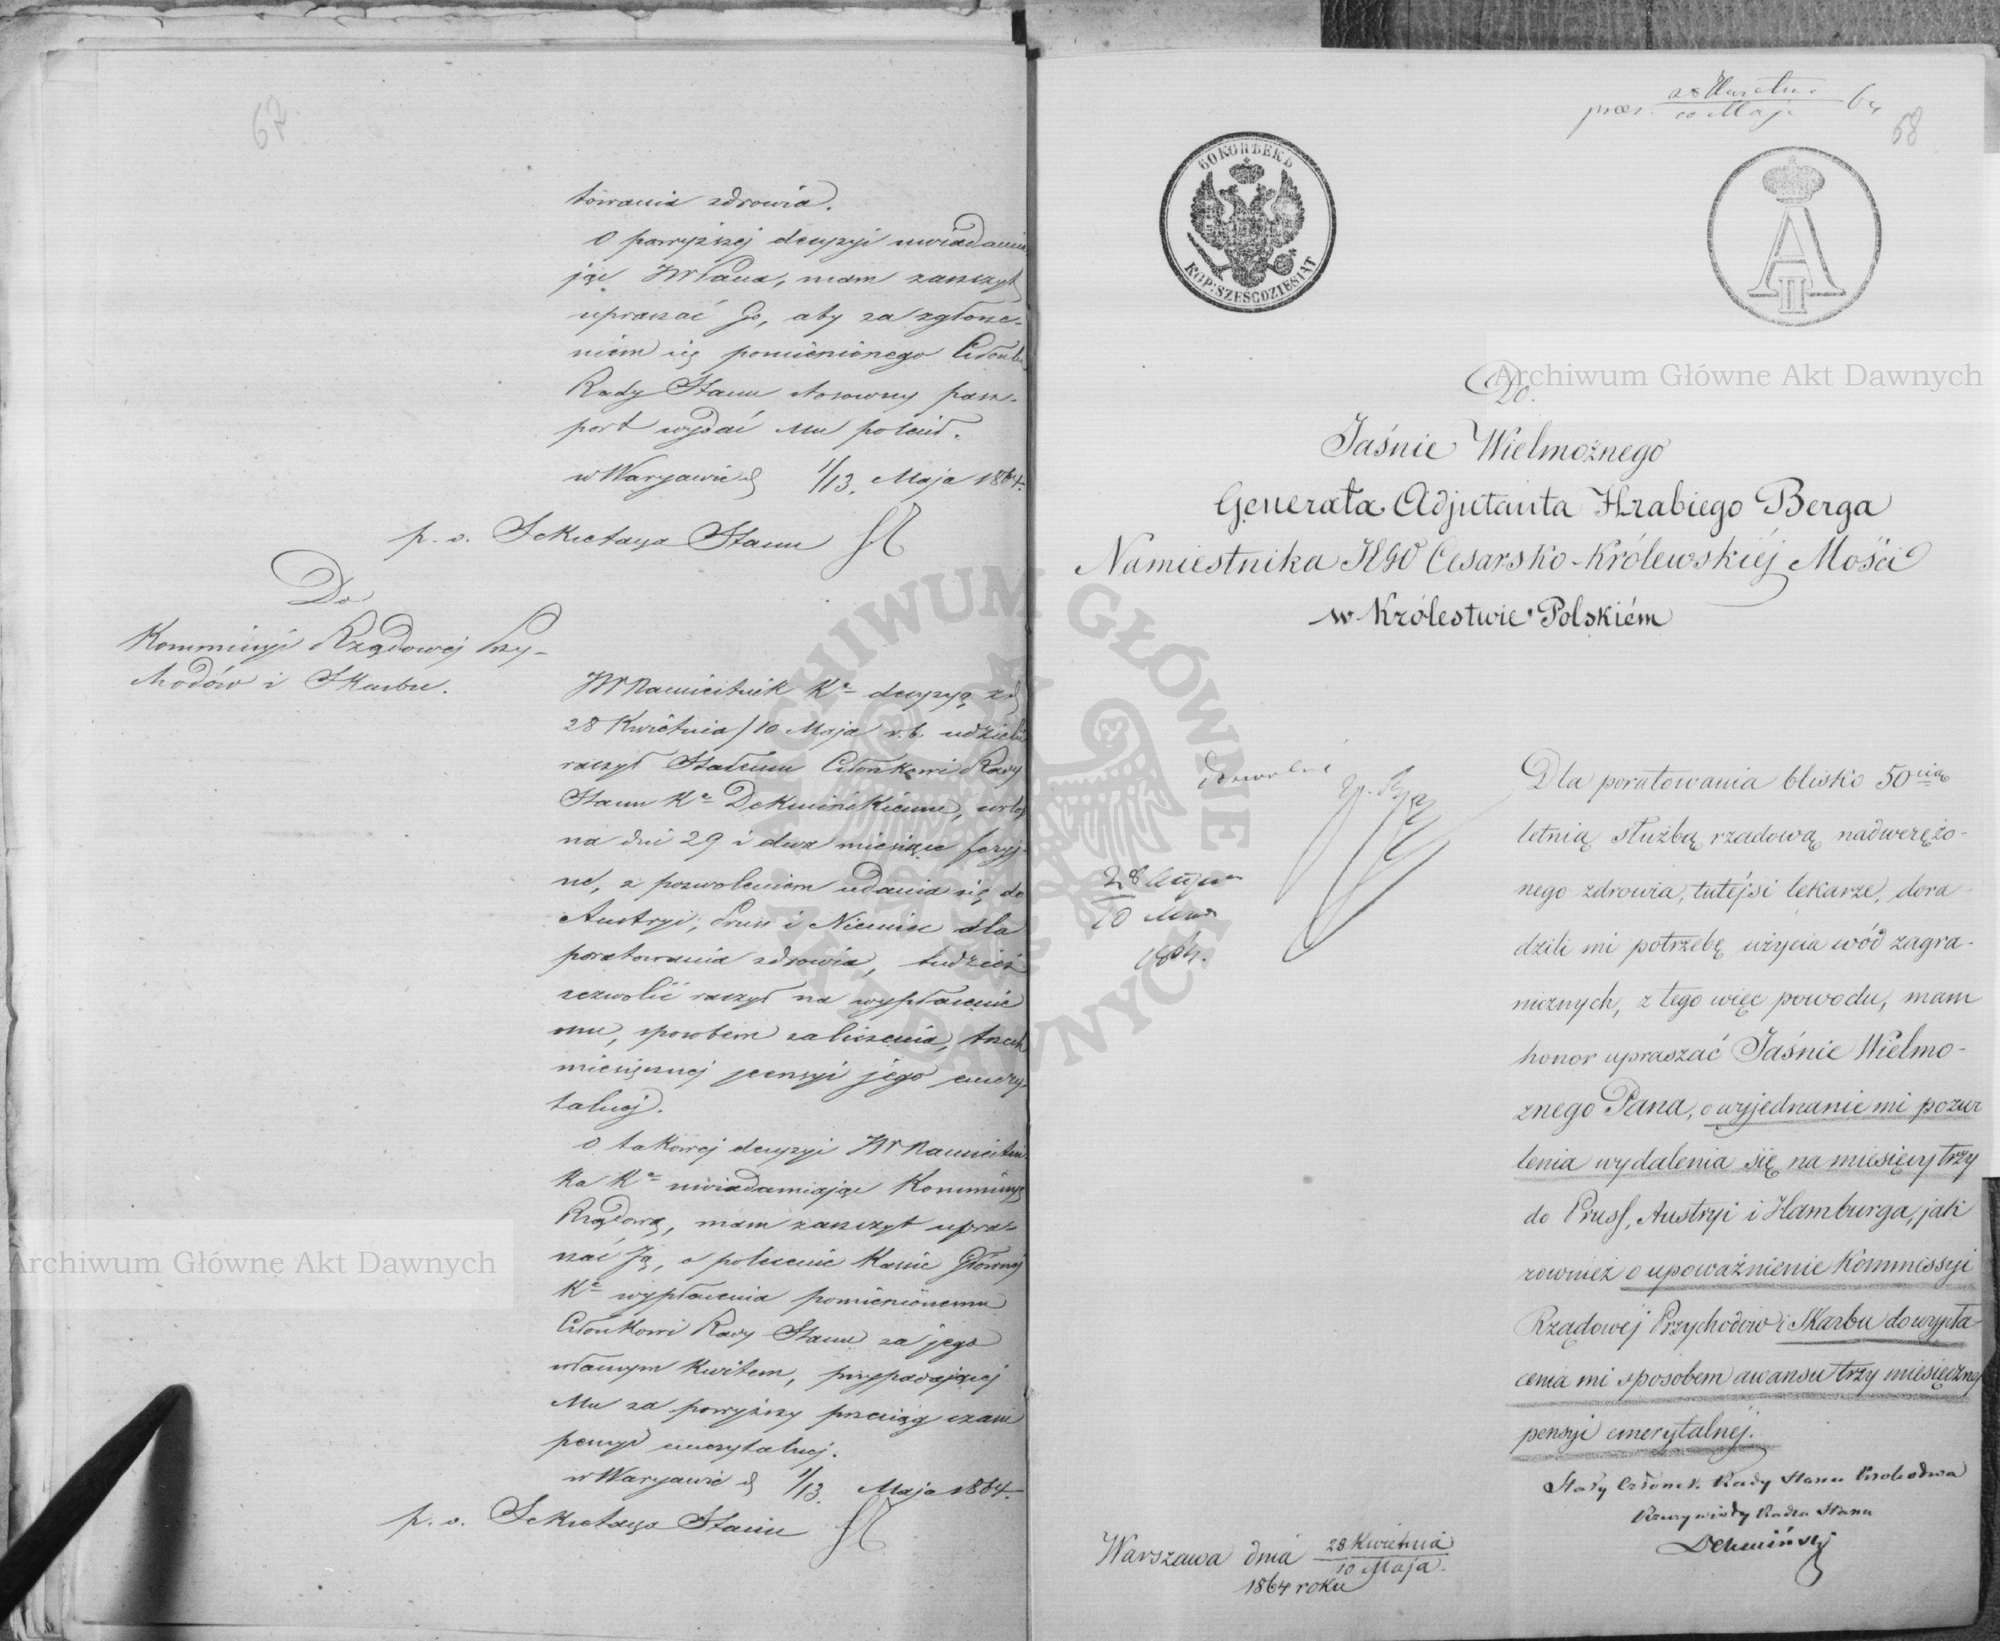 67
towania zdrowia.
O powyższej decyzyi uwiadamia-
jąc JW Pana, mam zaszczyt
upraszać Go, aby za zgłosze-
niem się pomienionego Członka
Rady Stanu stosowny pasz-
port wydać Mu polecił.
w Warszawie d 1/13. Maja 1864.
p. o. Sekretarza Stanu
Do
Kommissyi Rządowej Przy-
chodów i Skarbu.
JW Namiestnik Kr decyzyą z d
28 Kwietnia/10 Maja r.b. udzielić
raczył Stałemu Członkowi Rady
Stanu Kr Dekucińskiemu, urlop
na dni 29 i dwa miesiące feryj-
ne, z pozwoleniem udania się do
Austryi, Pruss i Niemiec dla
poratowania zdrowia, tudzież
zezwolić raczył na wypłacenie
mu, sposobem zaliczenia, trzech
miesięcznej pensyi jego emery-
talnej.
O takowej decyzyi JW Namiestni-
ka Kr uwiadamiając Kommissyę
Rządową, mam zaszczyt upra-
szać Ją, o polecenie Kassie Głównej
Kr wypłacenia pomienionemu
Członkowi Rady Stanu za jego
własnym kwitem, przypadającej
Mu za powyższy przeciąg czasu
pensyi emerytalnej.
w Warszawie d 1/13. Maja 1864.
p. o. Sekretarza Stanu
prez. 28 Kwietnia
10 Maja 64
68
60 КОПѢЕКЪ
KOP: SZEŚĆDZIESIĄT
A II
Do.
Jaśnie Wielmożnego
Generała Adjutanta Hrabiego Berga
Namiestnika JEGO Cesarsko-Królewskiéj Mości
w Królestwie Polskiém
Dla poratowania blisko 50nią
letnią służbą rządową nadwerężo-
nego zdrowia, tutejsi lekarze, dora-
dzili mi potrzebę użycia wód zagra-
nicznych, z tego więc powodu, mam
honor upraszać Jaśnie Wielmo-
żnego Pana, o wyjednanie mi pozwo
lenia wydalenia się na miesięcy trzy
do Pruss, Austryi i Hamburga, jak
rownież o upoważnienie Kommissyi
Rządowej Przychodów i Skarbu do wypła-
cenia mi sposobem awansu trzy miesięcznej
pensyi emerytalnéj.
Stały Członek Rady Stanu Królestwa
Rzeczywisty Radca Stanu
28
10
1864.
Warszawa dnia 28 Kwietnia
10 Maja.
1864 roku
Archiwum Główne Akt Dawnych
Archiwum Główne Akt Dawnych
ARCHIWUM GŁÓWNE AKT DAWNYCH